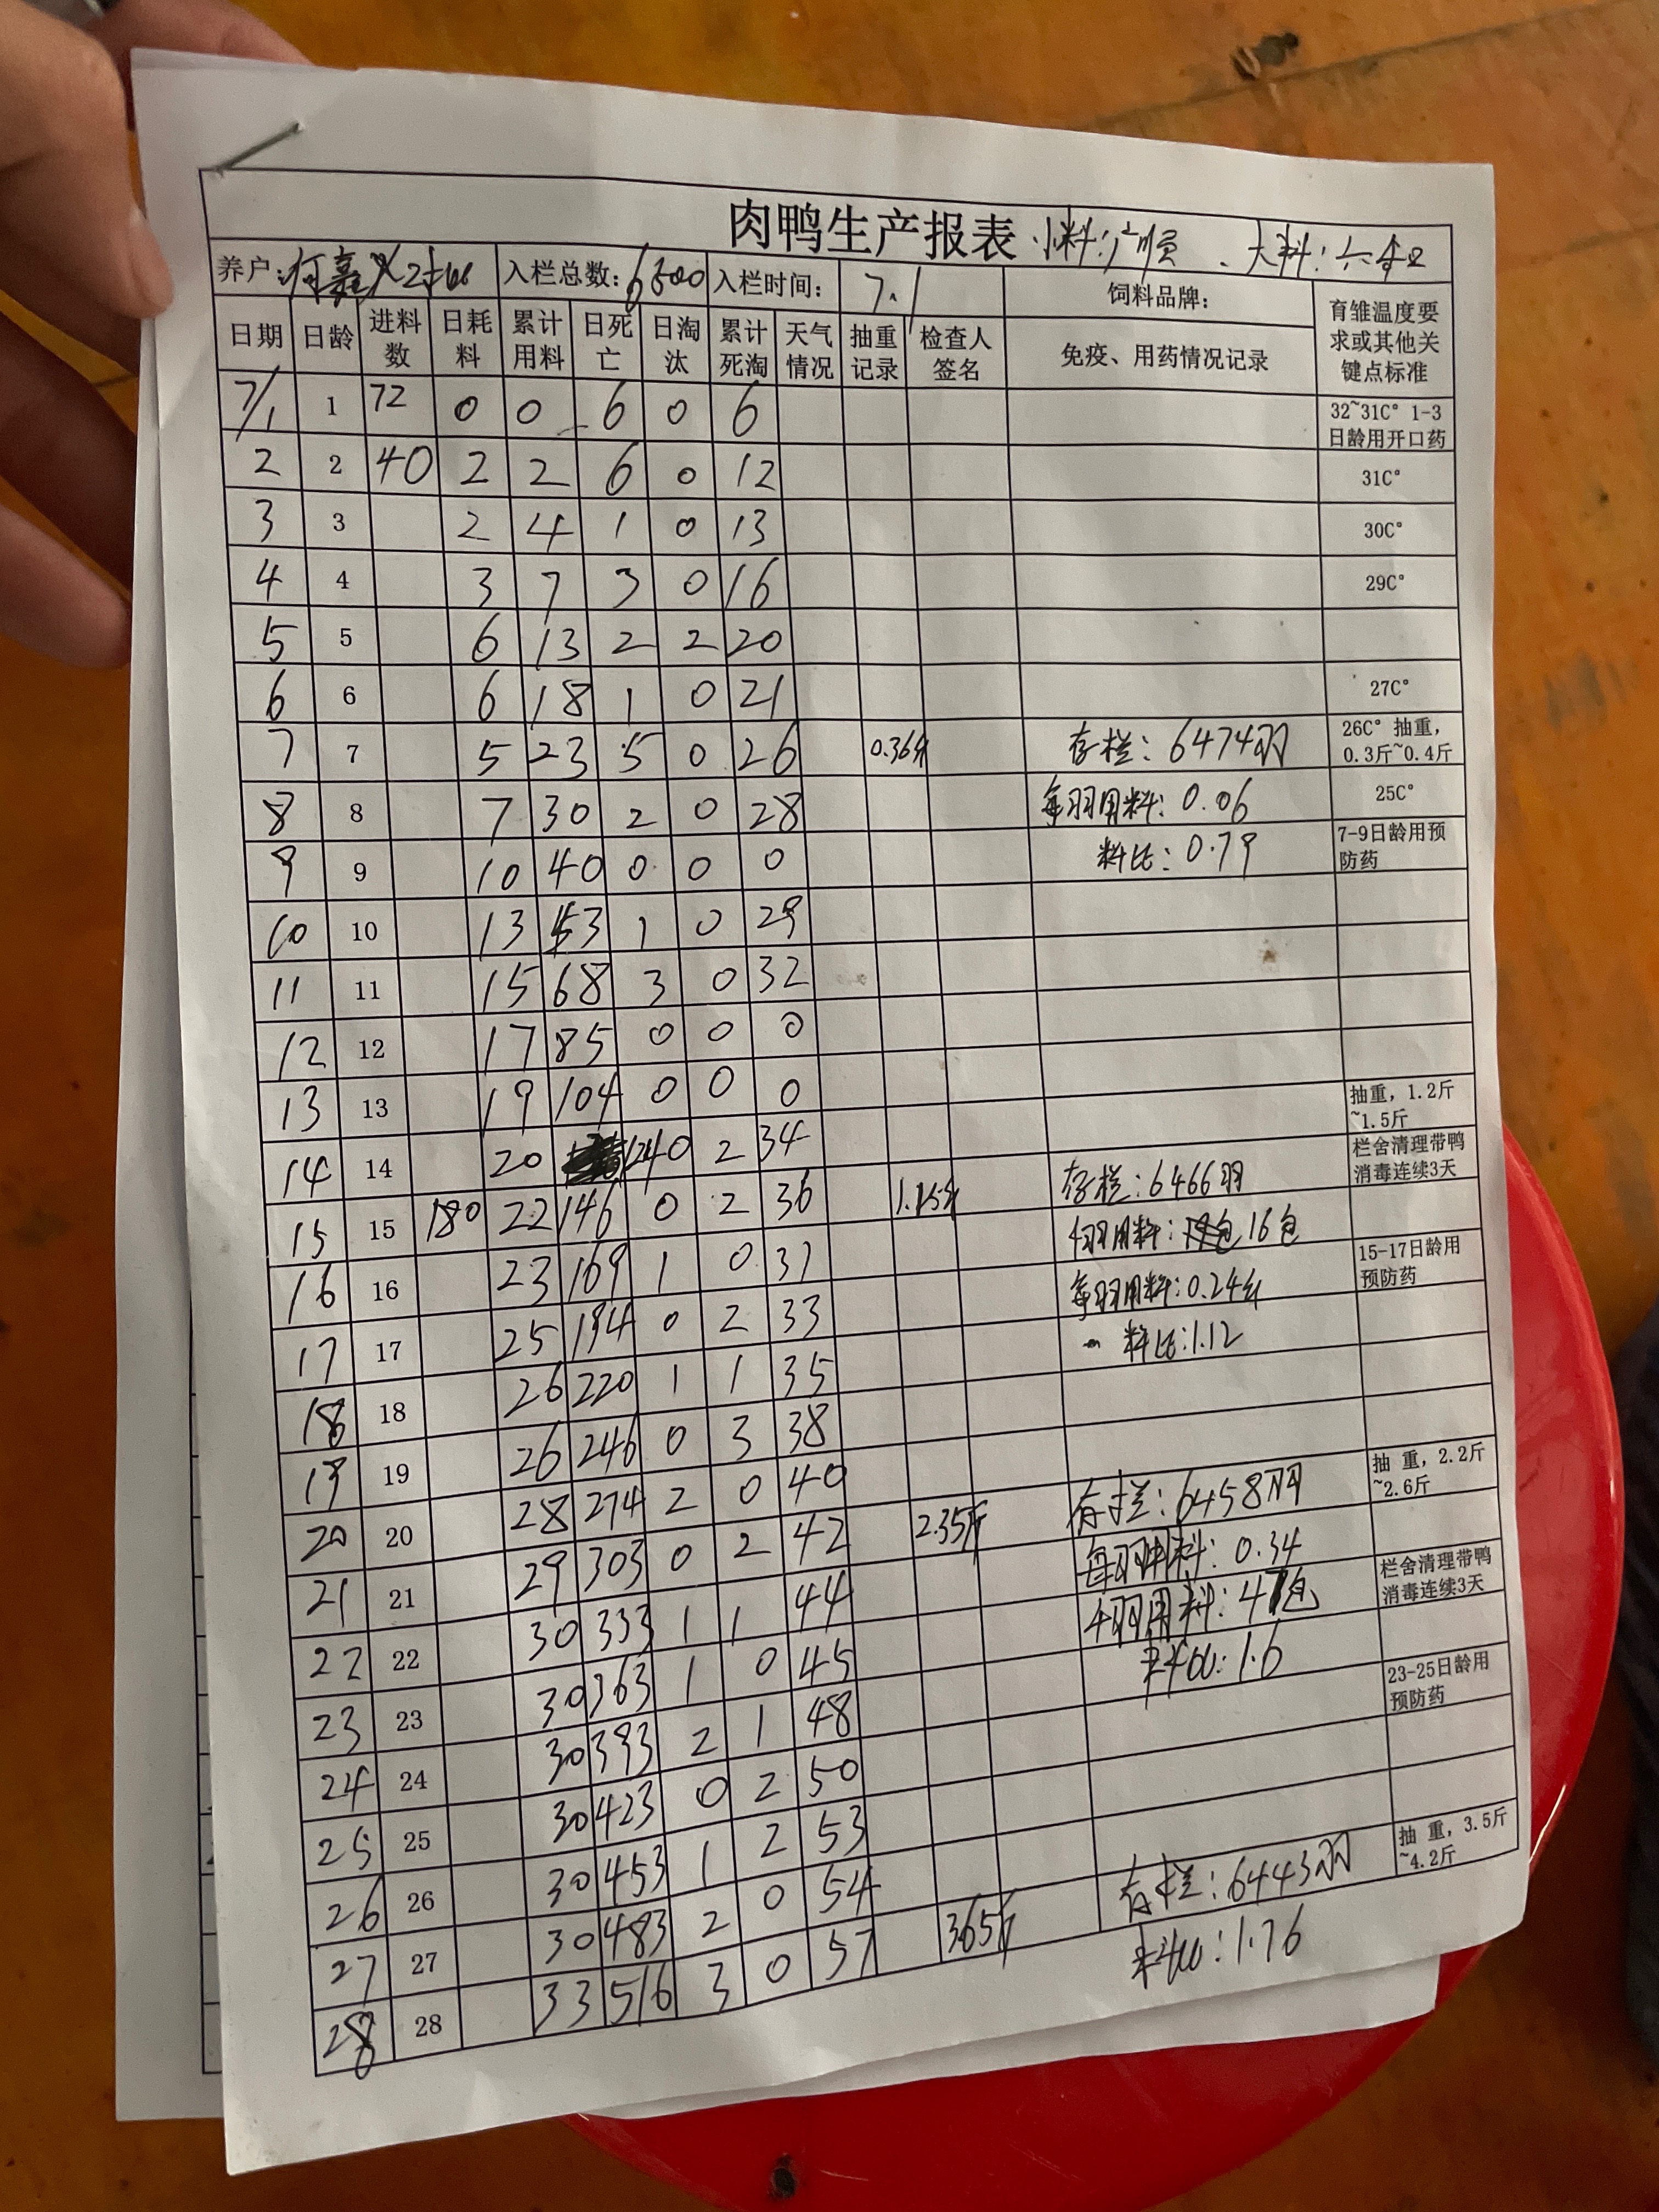 肉鸭生产报表 小料:广顺 、大料:六和
养户: 入栏总数:6500 入栏时间: 7.1 饲料品牌: 育雏温度要求或其他关键点标准
日期 日龄 进料数 日耗料 累计用料 日死亡 日淘汰 累计死淘 天气情况 抽重记录 检查人签名 免疫、用药情况记录
7/1 1 72 0 0 6 0 6 32~31C° 1-3日龄用开口药
2 2 40 2 2 6 0 12 31C°
3 3 2 4 1 0 13 30C°
4 4 3 7 3 0 16 29C°
5 5 6 13 2 2 20
6 6 6 18 1 0 21 27C°
7 7 5 23 5 0 26 0.36斤 存栏:6474羽 26C° 抽重,0.3斤~0.4斤
8 8 7 30 2 0 28 每羽用料:0.06 25C°
9 9 10 40 0 0 0 料比:0.79 7-9日龄用预防药
10 10 13 53 1 0 29
11 11 15 68 3 0 32
12 12 17 85 0 0 0
13 13 19 104 0 0 0 抽重,1.2斤~1.5斤
14 14 20 124 0 2 34 存栏:6466羽 栏舍清理带鸭消毒连续3天
15 15 180 22 146 0 2 36 1.15斤 4羽用料: 16包
16 16 23 169 1 0 37 每羽用料:0.24斤 15-17日龄用预防药
17 17 25 194 0 2 33 料比:1.12
18 18 26 220 1 1 35
19 19 26 246 0 3 38
20 20 28 274 2 0 40 2.35斤 存栏:6458羽 抽 重,2.2斤~2.6斤
21 21 29 303 0 2 42 每羽用料:0.34
22 22 30 333 1 1 44 4羽用料:47包 栏舍清理带鸭消毒连续3天
23 23 30 363 1 0 45 料比:1.6
24 24 30 393 2 1 48 23-25日龄用预防药
25 25 30 423 0 2 50
26 26 30 453 1 2 53
27 27 30 483 2 0 54 存栏:6443羽 抽 重,3.5斤~4.2斤
28 28 33 516 3 0 57 3.65斤 料比:1.76